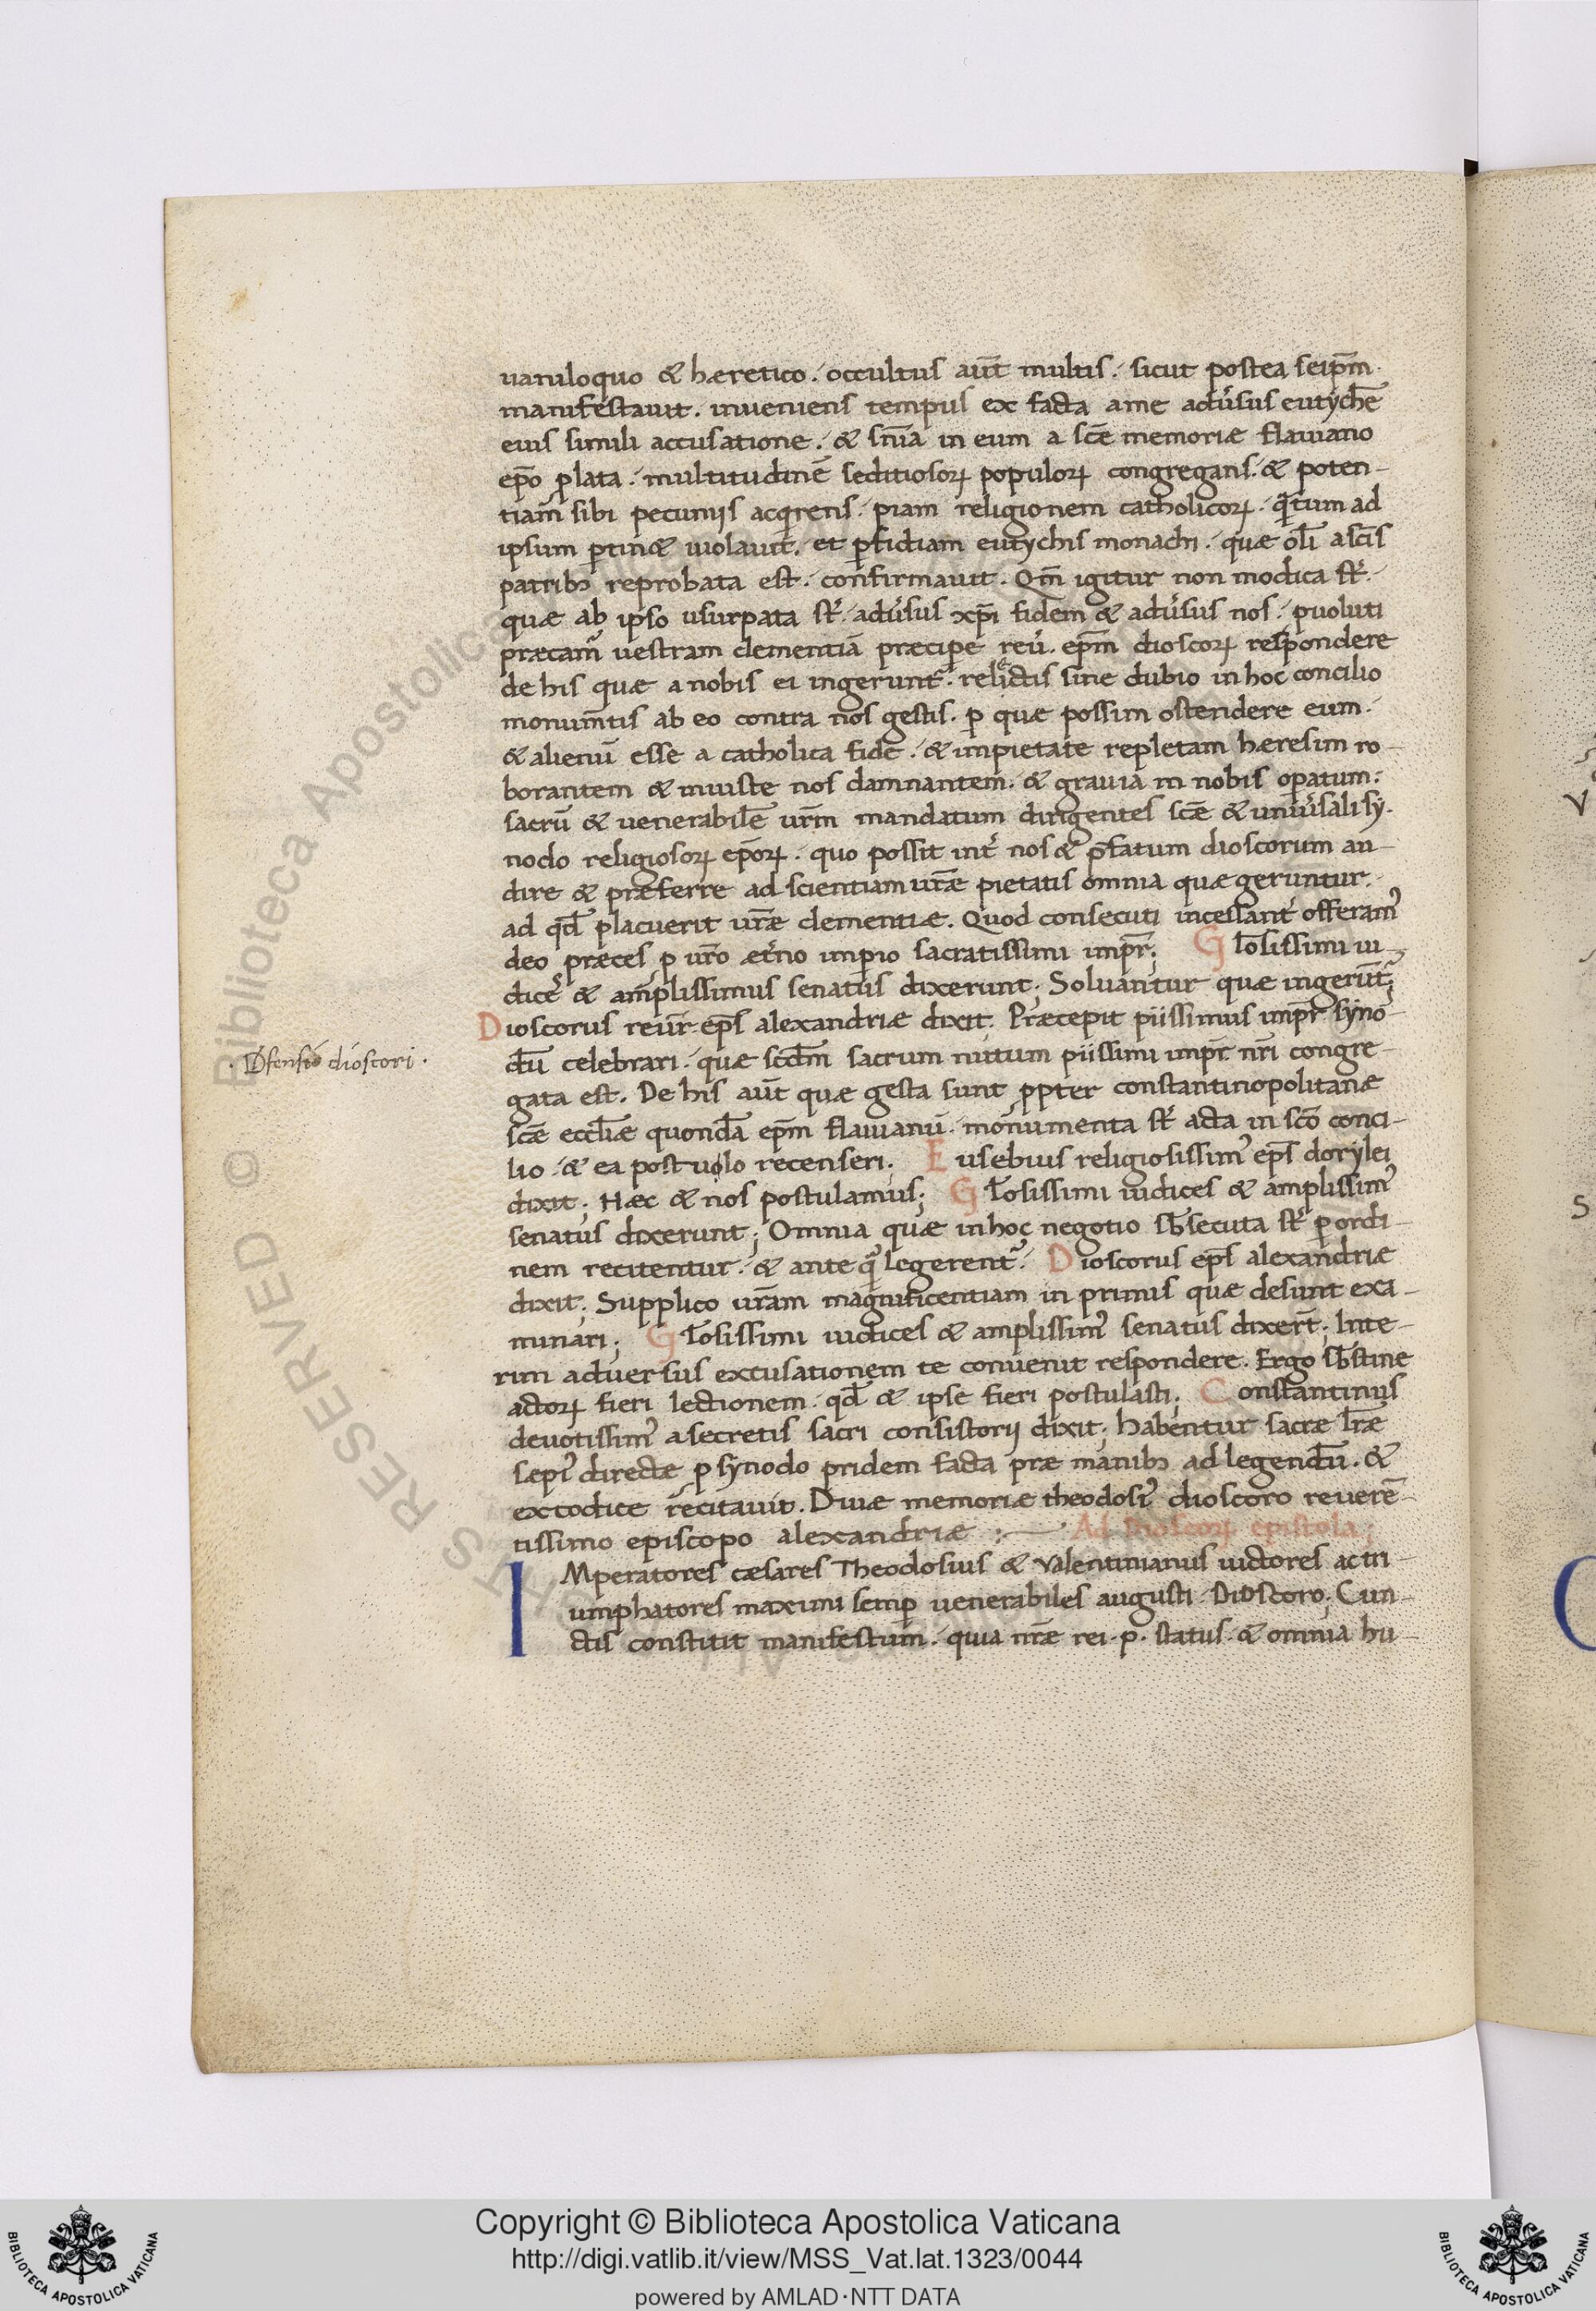 uaniloquo & hæretico. occultus aūt multis. sicut postea seip̄m
manifestauit. inueniens tempus ex facta a me adu̓sus eutychē
eius simili accusatione. & sn̄ia in eum a scē memoriæ flauiano
ep̄o ꝓlata. multitudinē seditiosoꝝ populoꝝ congregans. & poten-
tiam sibi pecunijs acq̓rens. piam religionem catholicoꝝ. q̓tum ad
ipsum ꝑtin& uiolauit. et ꝑfidiam eutychis monachi. quæ oli̅ a sc̄is
patribꝫ reprobata est. confirmauit. Qm̄ igitur non modica st̓.
quæ ab ipso usurpata st̓. adu̓sus xp̄i fidem & adu̓sus nos. ꝓuoluti
præcam̓ uestram clementiā præcipe reu̓. ep̄m dioscoꝝ respondere
de his quæ a nobis ei ingerunt̓. relictis sine dubio in hoc concilio
monum̄tis ab eo contra nos gestis. ꝑ quæ possim ostendere eum.
& alienū esse a catholica fide. & impietate repletam hæresim ro-
borantem & iniuste nos damnantem. & grauia in nobis oꝑatum:
sacrū & uenerabilē ur̄m mandatum dirigentes scē & uniu̓sali sy-
nodo religiosoꝝ ep̄oꝝ. quo possit int̓ nos & p̄fatum dioscorum au-
dire & præferre ad scientiam ur̄æ pietatis omnia quæ geruntur.
ad qd̄ placuerit ur̄æ clementiæ. Quod consecuti incessant̓ offeram̓
deo præces ꝓ ur̄o æt̓no imꝑio sacratissimi imp̄r; Gl̄osissimi iu-
dice̓ & amplissimus senatus dixerunt; Soluantur quæ ingerūt̓;
Dioscorus reu̅r ep̄s alexandriæ dixit. Præcepit piissimus imp̄r syno-
dū celebrari. quæ scd̄m sacrum nutum piissimi imp̄r nr̄i congre-
gata est. De his aūt quæ gesta sunt ꝓpter constantinopolitanæ
scē eccl̄iæ quondā ep̄m flauianū. monumenta st̓ acta in scō conci-
lio. & ea postulo recenseri. Eusebius religiosissim̓ ep̄s dorylei
dixit; Hæc & nos postulamus; Gl̄osissimi iudices & amplissim̓
senatus dixerunt; Omnia quæ in hoc negotio sb̄secuta st̓ ꝑ ordi-
nem recitentur. & ante q̓ legerent̓. Dioscorus ep̄s alexandriæ
dixit. Supplico ur̄am magnificentiam in primis quæ desunt exa-
minari; Gl̄osissimi iudices & amplissim̓ senatus dixer̄t; Inte-
rim aduersus excusationem te conuenit respondere. Ergo sb̄stine
actoꝝ fieri lectionem. qd̄ & ipse fieri postulasti; Constantinus
deuotissim̓ a secretis sacri consistorij dixit; Habentur sacræ lr̄æ
sepi̓ directæ ꝓ synodo pridem facta præ manibꝫ ad legendū. &
ex codice recitauit. Diuæ memoriæ theodosi̓ dioscoro reuerē-
tissimo episcopo alexandriæ :— Ad Dioscoꝝ epistola;
IMperatores cæsares Theodosius & Valentinianus uictores ac tri-
umphatores maximi semꝑ uenerabiles augusti Dioscoro; Cun-
ctis constitit manifestum. quia nr̄æ rei. p. status. & omnia hu-
. Dfensiō dioscori .
Copyright © Biblioteca Apostolica Vaticana
http://digi.vatlib.it/view/MSS_Vat.lat.1323/0044
powered by AMLAD·NTT DATA